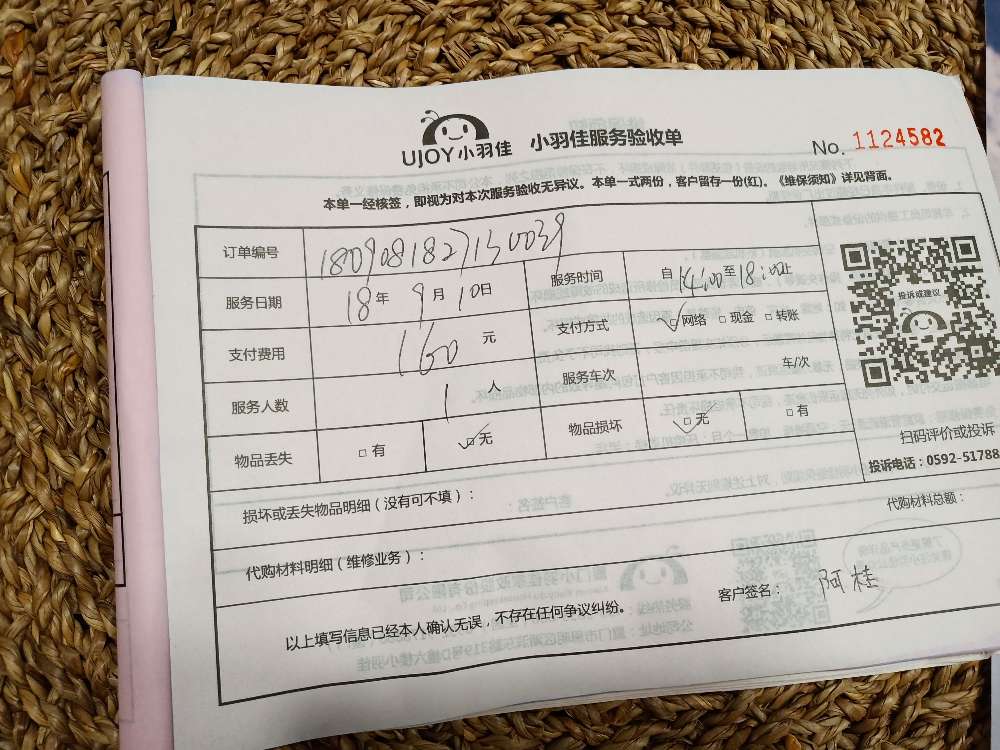 UJOY小羽佳 小羽佳服务验收单
No. 1124582
本单一经核签，即视为对本次服务验收无异议。本单一式两份，客户留存一份(红)。《维保须知》详见背面。
订单编号 1809081827130039
服务日期 18年 9月 10日 服务时间 自14:00至18:00止
支付费用 160 元 支付方式 ☑网络 □现金 □转账
服务人数 1 人 服务车次 车/次
物品丢失 □有 ☑无 物品损坏 ☑无 □有
投诉或建议
扫码评价或投诉
投诉电话：0592-51788
损坏或丢失物品明细（没有可不填）：
代购材料明细（维修业务）： 代购材料总额：
以上填写信息已经本人确认无误，不存在任何争议纠纷。 客户签名： 阿桂